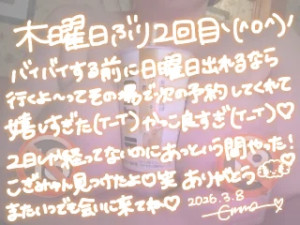 木曜日ぶり2回目ヽ(^o^)ﾉ
バイバイする前に日曜日出れるなら
行くよ〜ってその場で次の予約してくれて
嬉しすぎた(T-T)かっこ良すぎ(T-T)♡
2日しか経ってないのにあっという間やった!
こざめちゃん見つけたよ♡笑 ありがとう
またいつでも会いに来てね♡ 2026.3.8